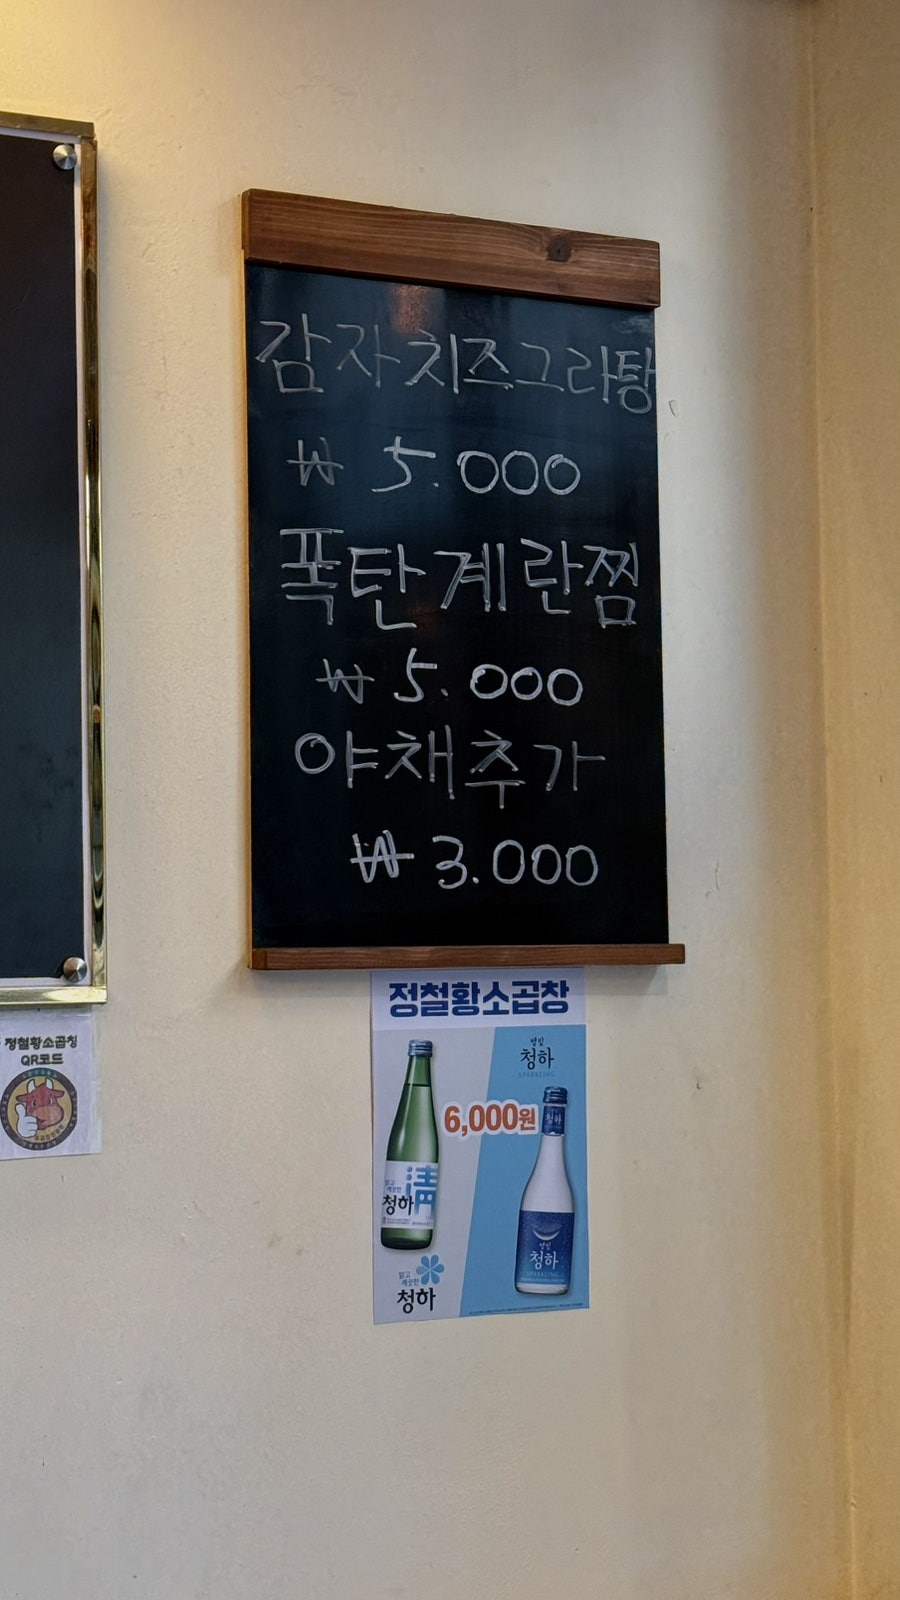 감자치즈그라탕
₩ 5.000
폭탄계란찜
₩ 5.000
야채추가
₩ 3.000
정철황소곱창
별빛
청하
SPARKLING
6,000원
청하
맑고
깨끗한
청하
淸
별빛
청하
SPARKLING
맑고
깨끗한
청하
정철황소곱창
QR코드